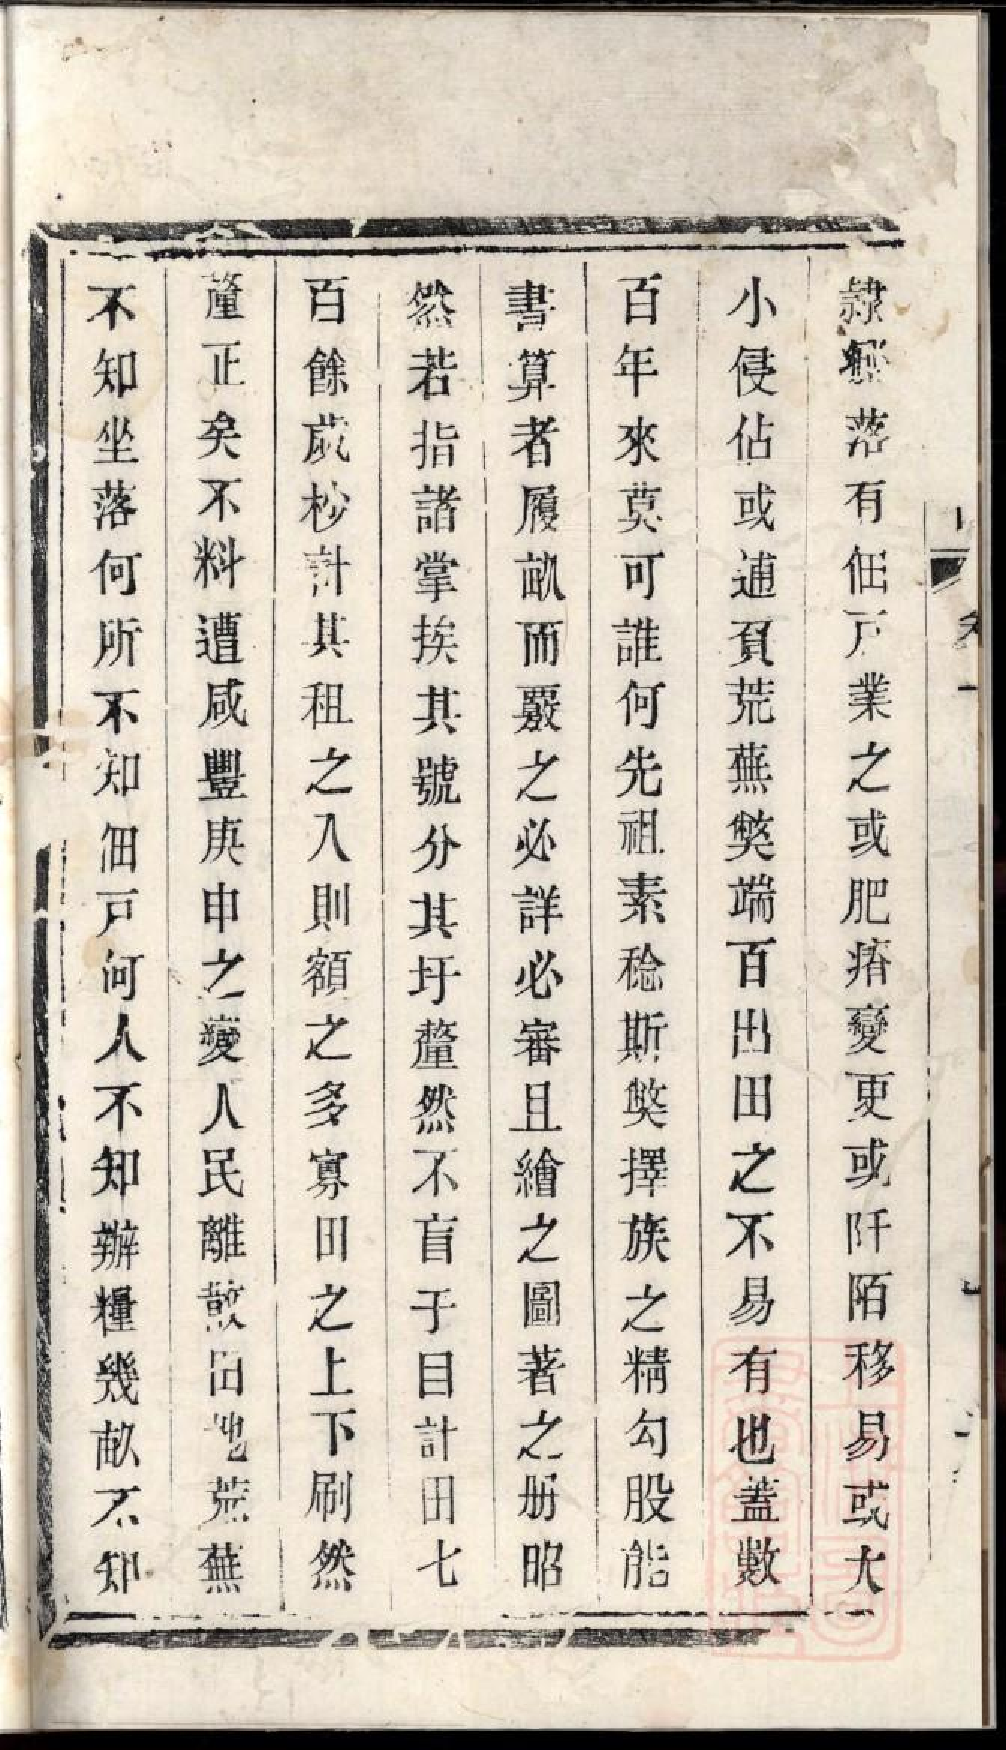 隷郷落有佃戸業之或肥瘠變更或阡陌移易或大
小侵佔或逋負荒蕪獘端百出田之不易有也蓋數
百年來莫可誰何先祖素稔斯獘擇族之精勾股能
書算者履畝而覈之必詳必審且繪之圖著之册昭
然若指諸掌挨其號分其圩釐然不盲于目計田七
百餘畝杪計其租之入則額之多寡田之上下刷然
釐正矣不料遭咸豐庚申之變人民離散田地荒蕪
不知坐落何所不知佃戸何人不知辦糧幾畝不知